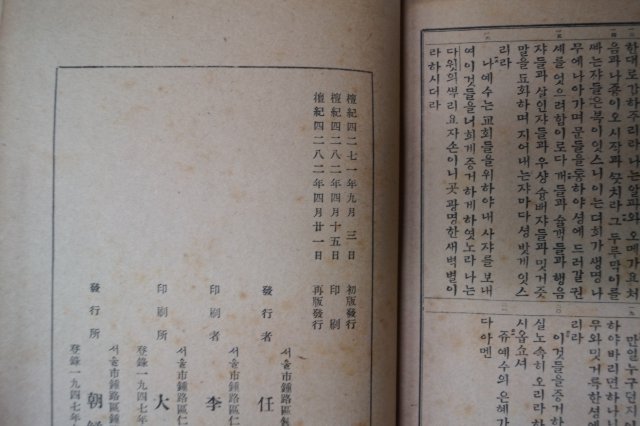 한대로갑하주리라나는알파와오메가요처
음과나죵이오시작과끗치라그두루막이를
빠는쟈들은복이잇스니이는뎌희가생명나
무에나아가며문들을통하야셩에드러갈권
셰를엇으려함이로다개들과술객들과행음
쟈들과살인쟈들과우샹슝배쟈들과밋거즛
말을됴화하며지어내는쟈마다셩밧게잇스
리라
나예수는교회들을위하야내사쟈를보내
여이것들을너희게증거하게하엿노라나는
다윗의뿌리요자손이니곳광명한새벽별이
라하시더라
만일누구던지이
하야바리면하나니
무와밋거룩한셩에
리라
이것들을증거하
실노속히오리라하
시옵쇼셔
쥬예수의은혜가
다아멘
檀紀四二七一年九月三日 初版發行
檀紀四二八二年四月十五日 印刷
檀紀四二八二年四月廿一日 再版發行
서울市鍾路區鍾
發行者 任
서울市鍾路區仁
印刷者 李
서울市鍾路區仁
印刷所 大
登錄一九四七年
서울市鍾路區鍾
發行所 朝
登錄一九四七年